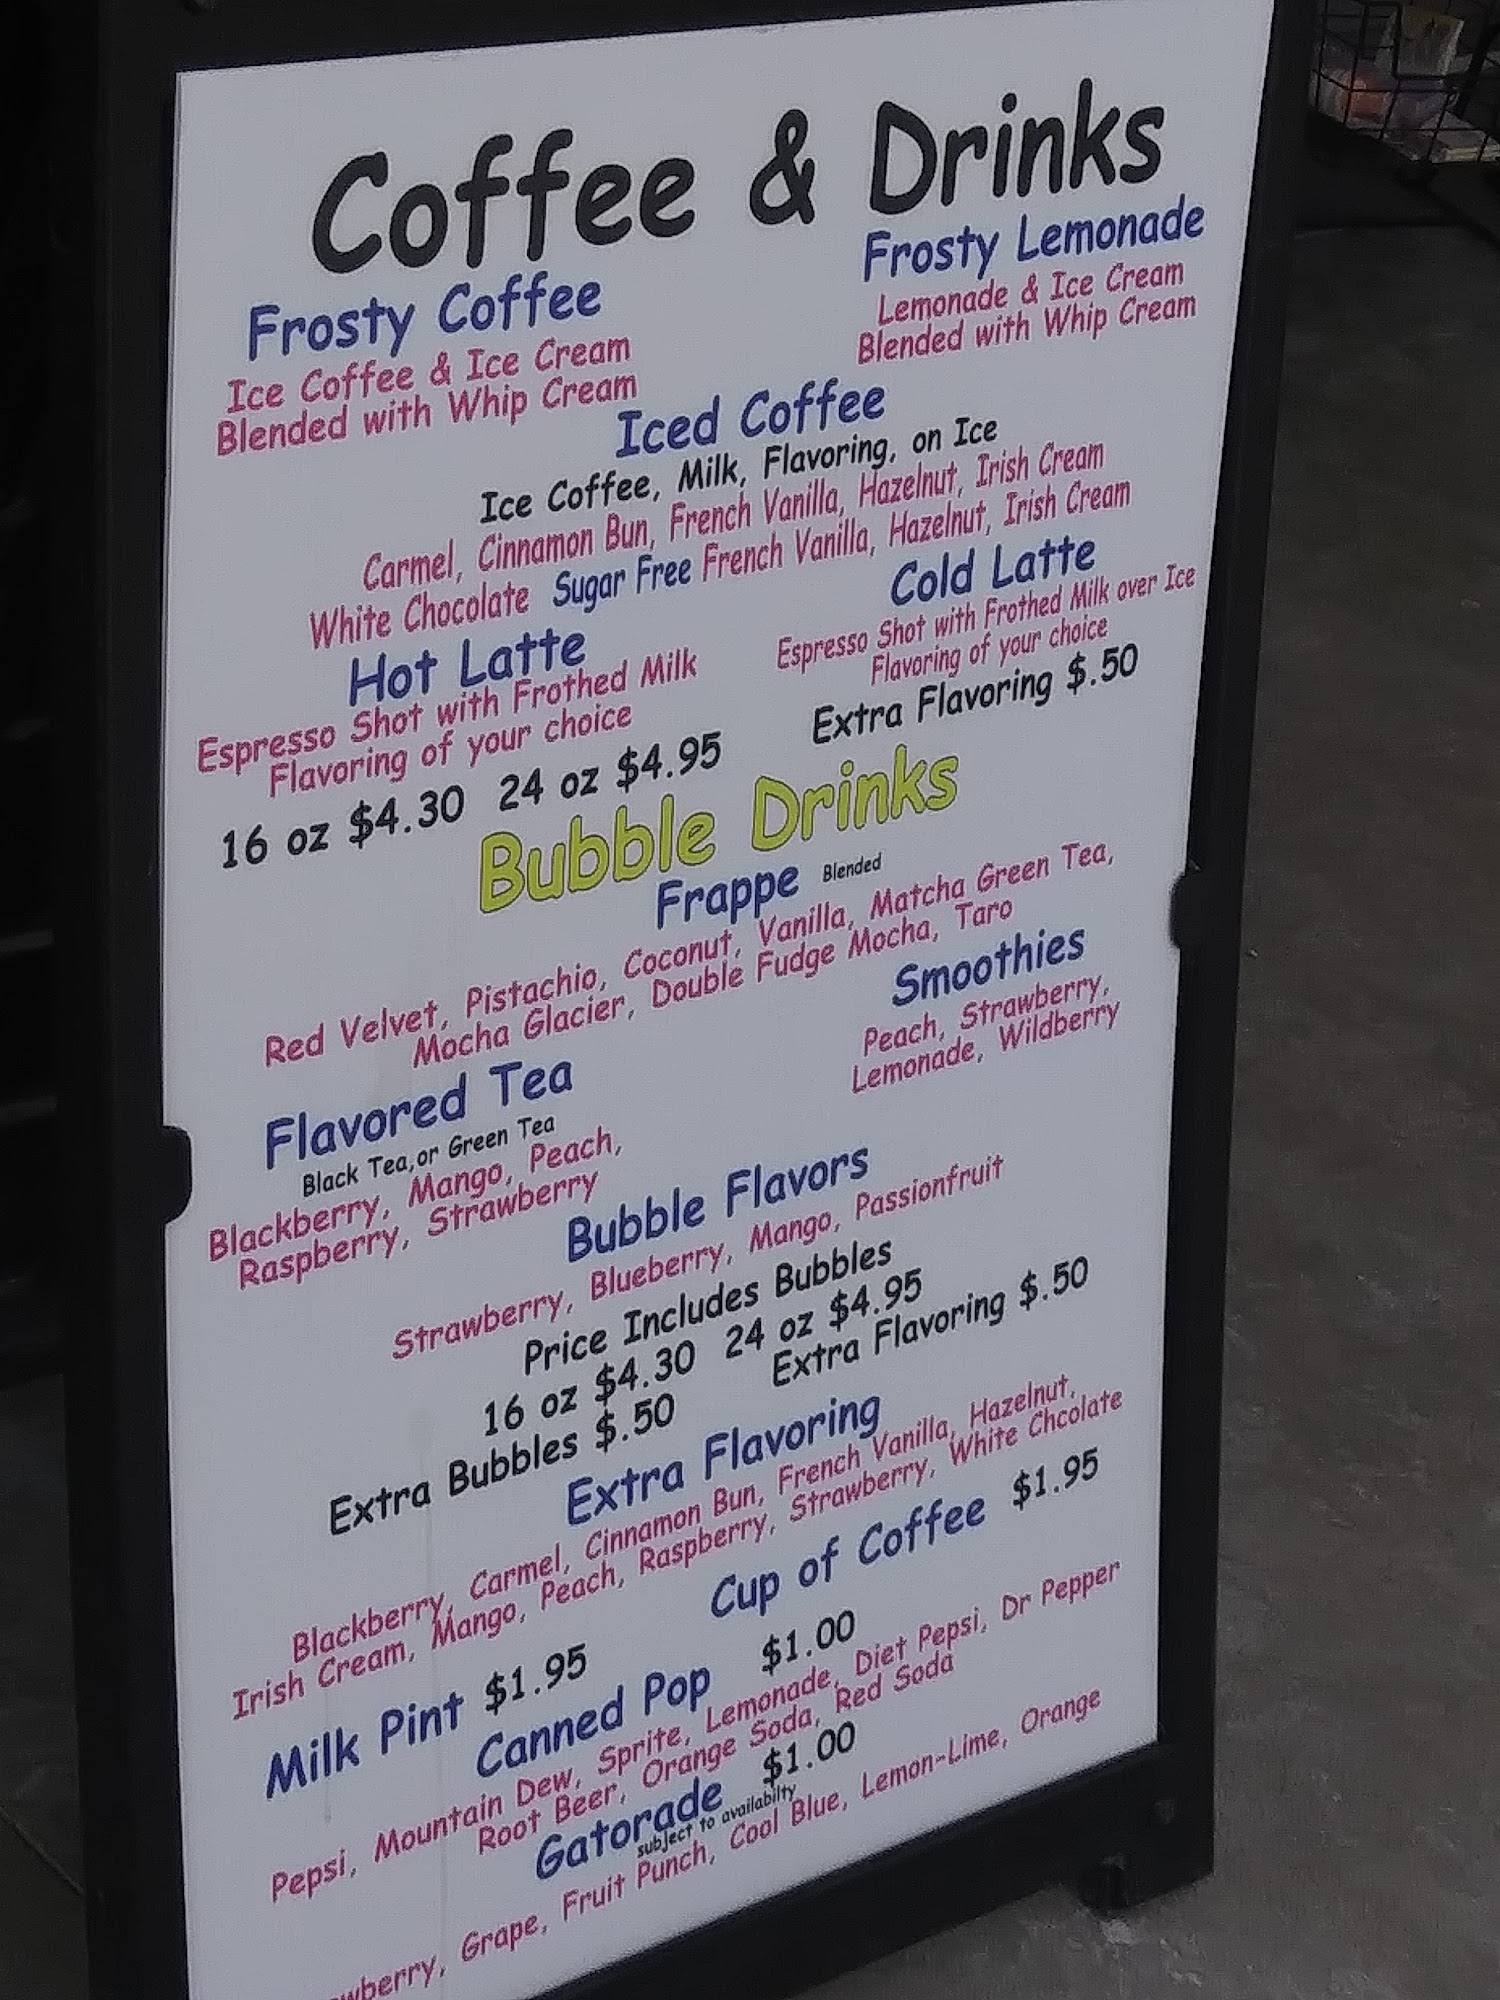 Coffee & Drinks
Frosty Coffee
Ice Coffee & Ice Cream
Blended with Whip Cream
Frosty Lemonade
Lemonade & Ice Cream
Blended with Whip Cream
Iced Coffee
Ice Coffee, Milk, Flavoring, on Ice
Carmel, Cinnamon Bun, French Vanilla, Hazelnut, Irish Cream
White Chocolate Sugar Free French Vanilla, Hazelnut, Irish Cream
Hot Latte
Espresso Shot with Frothed Milk
Flavoring of your choice
Cold Latte
Espresso Shot with Frothed Milk over Ice
Flavoring of your choice
16 oz $4.30 24 oz $4.95
Extra Flavoring $.50
Bubble Drinks
Frappe Blended
Red Velvet, Pistachio, Coconut, Vanilla, Matcha Green Tea,
Mocha Glacier, Double Fudge Mocha, Taro
Flavored Tea
Black Tea,or Green Tea
Blackberry, Mango, Peach,
Raspberry, Strawberry
Smoothies
Peach, Strawberry,
Lemonade, Wildberry
Bubble Flavors
Strawberry, Blueberry, Mango, Passionfruit
Price Includes Bubbles
16 oz $4.30 24 oz $4.95
Extra Bubbles $.50 Extra Flavoring $.50
Extra Flavoring
Blackberry, Carmel, Cinnamon Bun, French Vanilla, Hazelnut,
Irish Cream, Mango, Peach, Raspberry, Strawberry, White Chcolate
Milk Pint $1.95 Cup of Coffee $1.95
Canned Pop $1.00
Pepsi, Mountain Dew, Sprite, Lemonade, Diet Pepsi, Dr Pepper
Root Beer, Orange Soda, Red Soda
Gatorade $1.00
subject to availabilty
wberry, Grape, Fruit Punch, Cool Blue, Lemon-Lime, Orange